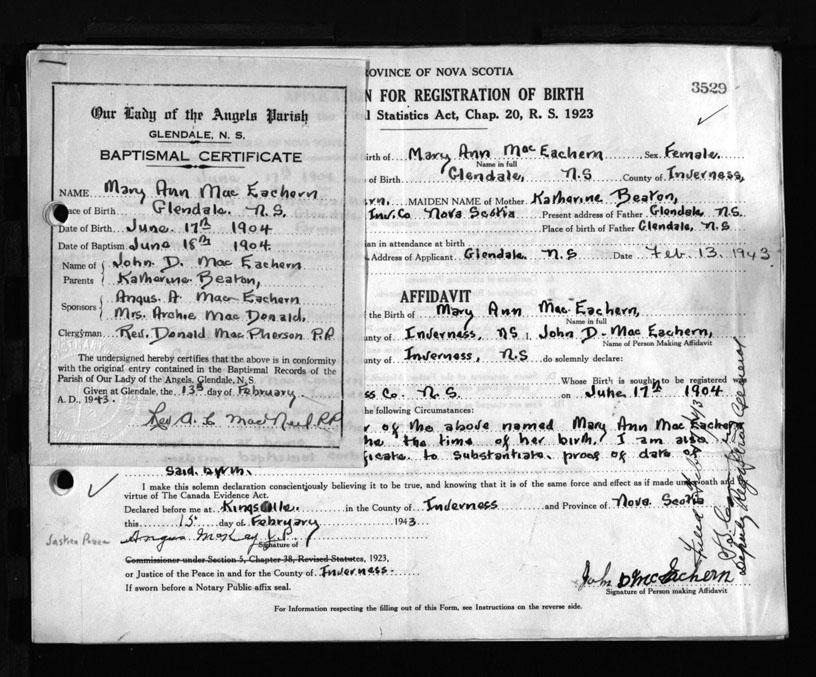 Our Lady of the Angels Parish
GLENDALE, N. S.
BAPTISMAL CERTIFICATE
NAME Mary Ann Mac Eachern
Place of Birth Glendale. N.S.
Date of Birth June 17th 1904
Date of Baptism June 18th 1904
Name of Parents John D. Mac Eachern
Katherine Beaton,
Sponsors Angus A. Mac Eachern
Mrs. Archie Mac Donald,
Clergyman Rev. Donald Mac Pherson P.P.
The undersigned hereby certifies that the above is in conformity
with the original entry contained in the Baptismal Records of the
Parish of Our Lady of the Angels, Glendale, N. S.
Given at Glendale, the 13th day of February
A. D., 1943.
Rev. A. L. Mac Neil P.P.
ROVINCE OF NOVA SCOTIA
3529
N FOR REGISTRATION OF BIRTH
l Statistics Act, Chap. 20, R. S. 1923
irth of Mary Ann Mac Eachern Sex Female
Name in full
of Birth Glendale, N.S County of Inverness,
rn. MAIDEN NAME of Mother Katherine Beaton,
Inv. Co Nova Scotia Present address of Father Glendale N.S.
Place of birth of Father Glendale, N.S
ian in attendance at birth
Address of Applicant Glendale. N.S Date Feb. 13. 1943.
AFFIDAVIT
f the Birth of Mary Ann Mac Eachern,
Name in full
nty of Inverness, NS I, John D. Mac Eachern,
Name of Person Making Affidavit
nty of Inverness, N.S do solemnly declare:
Whose Birth is sought to be registered
ss Co. N.S. on June 17th 1904
he following Circumstances:
r of the above named Mary Ann Mac Eachern
he the time of her birth. I am also
ficate to substantiate proof of date of
Said birth.
I make this solemn declaration conscientiously believing it to be true, and knowing that it is of the same force and effect as if made under oath and
virtue of The Canada Evidence Act.
Declared before me at Kingsville in the County of Inverness and Province of Nova Scotia
this 15 day of February 1943
Angus McKay J.P.
Signature of
Commissioner under Section 5, Chapter 38, Revised Statutes, 1923,
or Justice of the Peace in and for the County of Inverness.
If sworn before a Notary Public affix seal.
John D McEachern
Signature of Person making Affidavit
For Information respecting the filling out of this Form, see Instructions on the reverse side.
Deputy Registrar General